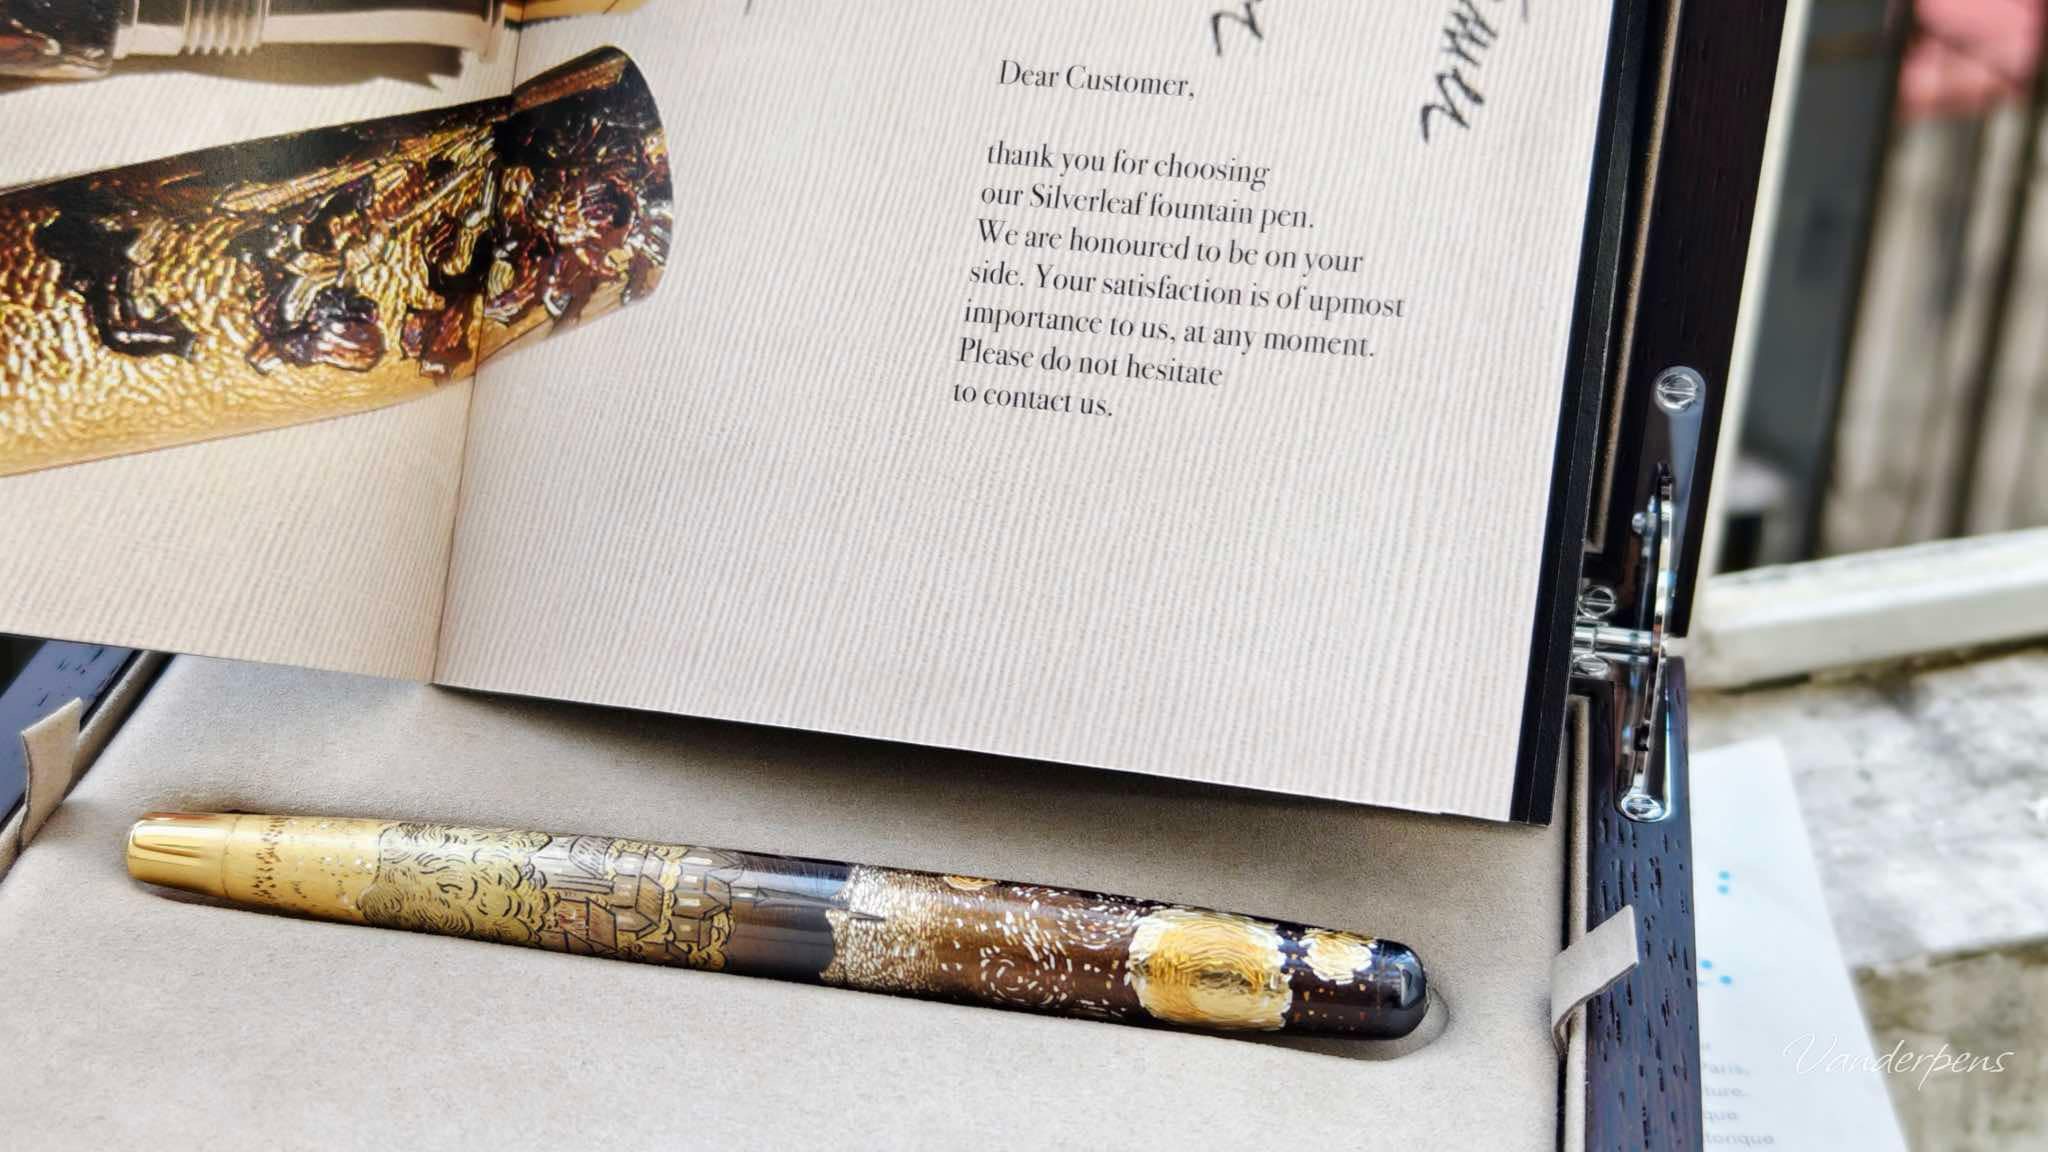 Dear Customer,
thank you for choosing
our Silverleaf fountain pen.
We are honoured to be on your
side. Your satisfaction is of upmost
importance to us, at any moment.
Please do not hesitate
to contact us.
Vanderpens
Paris,